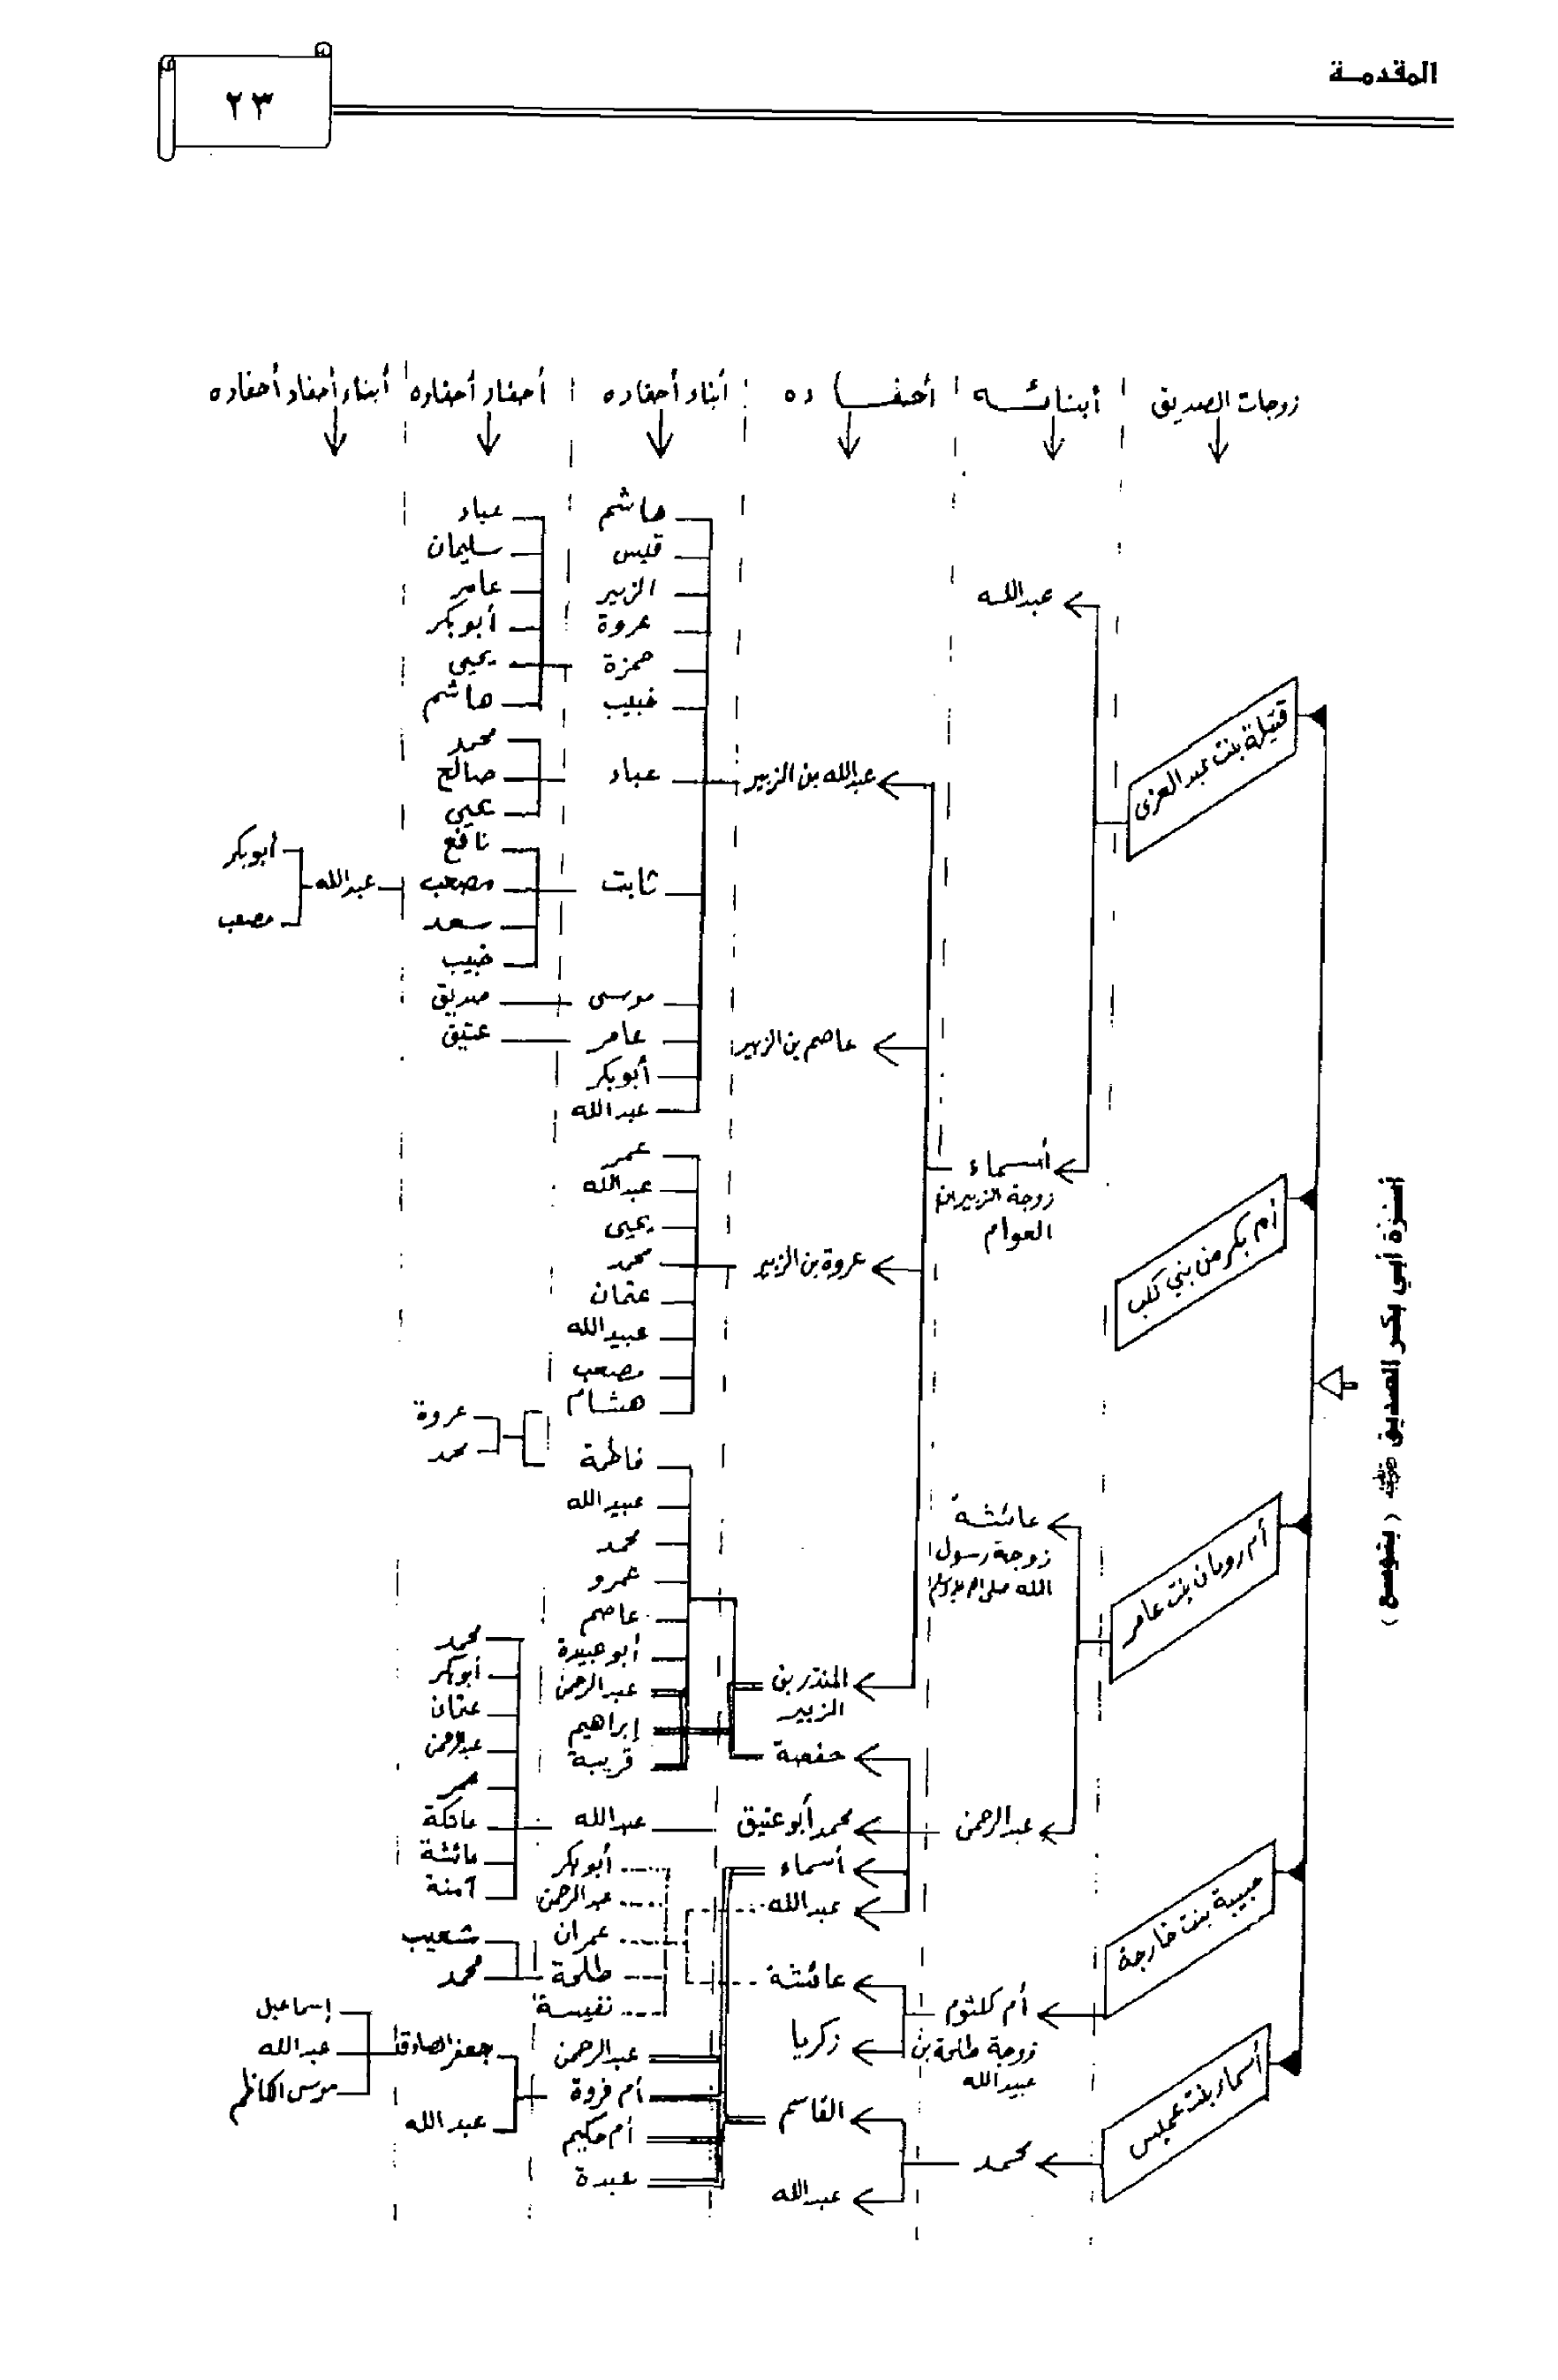 المقدمة
٢٣
أسرة أبي بكر الصديق رضي الله عنه (بتوسع)
زوجات الصديق
أبنائه
أحفاده
أبناء أحفاده
أحفاد أحفاده
أبناء أحفاد أحفاده
قتيلة بنت عبد العزى
أم بكر من بني كلب
أم رومان بنت عامر
حبيبة بنت خارجة
أسماء بنت عميس
عبدالله
أسماء
زوجة الزبير بن
العوام
عائشة
زوجة رسول
الله صلى الله عليه وسلم
عبدالرحمن
أم كلثوم
زوجة طلحة بن
عبيدالله
محمد
عبدالله بن الزبير
عاصم بن الزبير
عروة بن الزبير
المنذر بن
الزبير
حفصة
محمد أبو عتيق
أسماء
عبدالله
عائشة
زكريا
القاسم
عبدالله
هاشم
قيس
الزبير
عروة
حمزة
خبيب
عباد
ثابت
موسى
عامر
أبوبكر
عبدالله
عمر
عبدالله
يحيى
محمد
عثمان
عبيدالله
مصعب
هشام
فاطمة
عبيدالله
محمد
عمرو
عاصم
أبو عبيدة
عبدالرحمن
إبراهيم
قريبة
عبدالله
أبوبكر
عبدالرحمن
عمران
طلحة
نفيسة
عبدالرحمن
أم فروة
أم حكيم
عبدة
عباد
سليمان
عامر
أبوبكر
يحيى
هاشم
محمد
صالح
يحيى
نافع
مصعب
سعد
خبيب
صديق
عتيق
عروة
محمد
محمد
أبوبكر
عثمان
عبدالرحمن
عمر
عاتكة
عائشة
آمنة
شعيب
محمد
جعفر الصادق
عبدالله
عبدالله
أبوبكر
مصعب
إسماعيل
عبدالله
موسى الكاظم